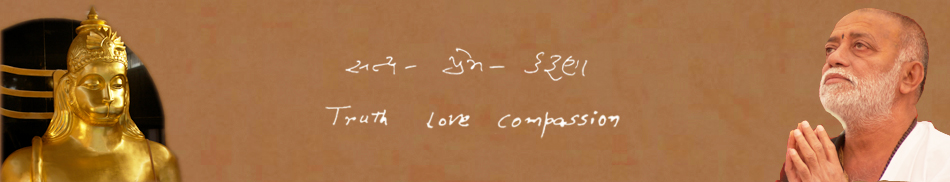 સત્ય - પ્રેમ - કરૂણા
Truth love compassion